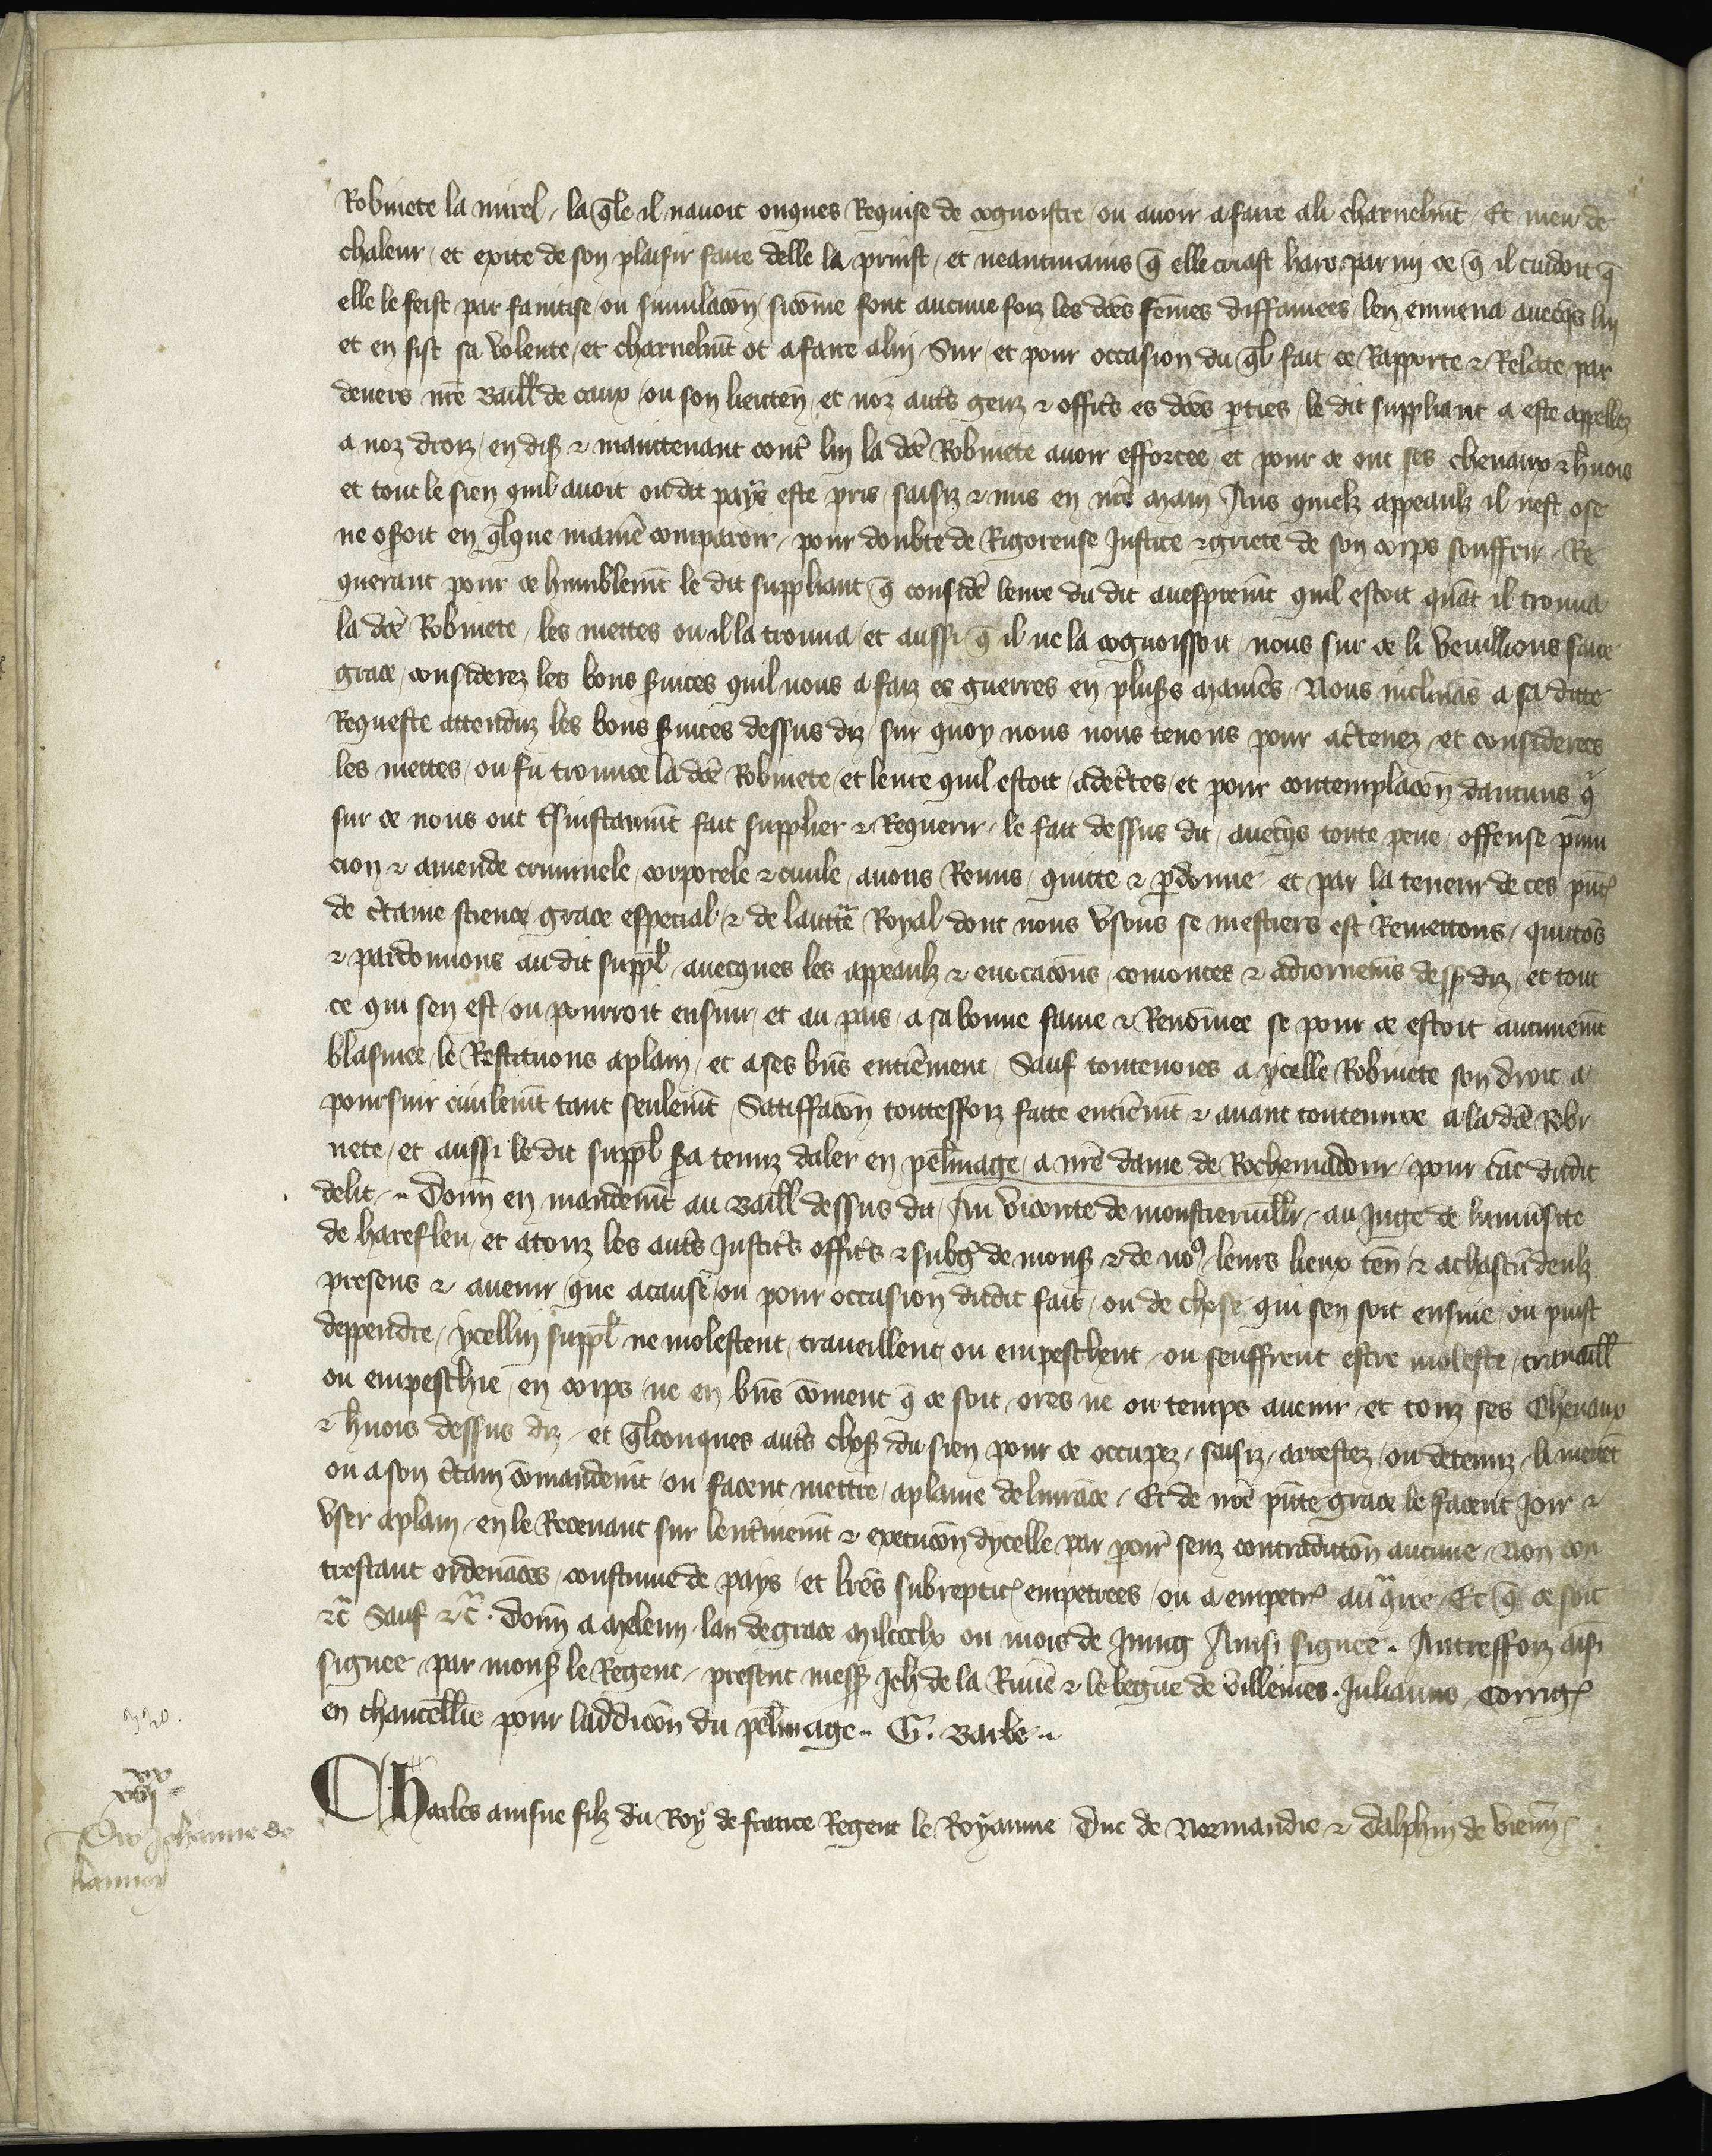 Robinete la mirel / la qle il navoit onques Requise de cognoistre ou avoir afaire ali charnelmt / Et meu de
chaleur / et exite de son plaisir faire delle la prinst / et neantmains q elle criast haro par mi ce q il cuidoit q
elle le feist par faintise ou simulacon / sicome font aucune foiz les dces femes diffamees / len emmena avecqs lui
et en fist sa volente / et charnelmt ot afaire alui / Sur / et pour occasion du ql fait ce Rapporte & Relate par
devers nre Baill de caux / ou son lieuten / et noz autrs genz & offics es dces pties / le dit suppliant a este appellez
a noz droiz / en dis & maintenant contr lui la dce Robinete avoir efforcee / et pour ce ont ses chevaux & hnois
et tout le sien quil avoit oudit pays este pris / saisiz & mis en nre main / Aus quielx appeaulx il nest ose
ne osoit en qlque maniere comparoir / pour doubte de Rigoreuse Justice & griete de son corps souffrir / Re
querant pour ce humblemt le dit suppliant / q consider leure du dit avespremt quil estoit quat il trouva
la dce Robinete / les mettes ou il la trouva / et aussi q il ne la cognoissoit / nous sur ce li veuillions faire
grace / considerez les bons svices quil nous a faiz es guerres en plus manies / Nous inclinas a sa ditte
Requeste attenduz les bons svices dessus diz / sur quoy nous nous tenons pour actenez / et considerees
les mettes / ou fu trouvee la dce Robinete / et leure quil estoit / adectes / et pour contemplacon daucuns q
sur ce nous ont tsinstanmt fait supplier & Requerir / le fait dessus dit / avecqs toute pene / offense puni
cion & amende criminele / corporele & civile / avons Remis / quitte & pdonne / et par la teneur de ces pnt
de ctaine science grace especial / & de lauctte Royal dont nous usons se mestiers est Remettons / quittos
& pardonnons audit suppl / avecques les appeaulx & evocacons / semonces & adiornemes dess diz / et tout
ce qui sen est / ou pourroit ensuir / et au pais / a sa bonne fame & Renomee se pour ce estoit aucunemt
blasmee / le Restituons aplain / et ases bns entierement / Sauf toutevoies a ycelle Robinete son droit a
poursuir civilemt tant seulemt / Satiffacon touteffoiz faite entieremt & avant toutenvre a la dce Robi
nete / et aussi le dit suppl sa tenuz daler en pelinage / a nre dame de Rochemadour / pour cae dudit
delit / Donn en mandemt au Baill dessus dit / Au viconte de monstierviller / au Juge de luniusite
de harefleu / et a touz les autrs Justics offics & subg de mons & de nos / leurs lieux ten & achascu deulz
presens & avenir / que acause / ou pour occasion dudit fait / ou de chose qui sen soit ensuie / ou puist
deppendre / ycellui suppl ne molestent / traveillent / ou empeschent / ou seuffrent estre moleste / travaill
ou empeschie / en corps / ne en bns coment q ce soit / ores ne ou temps avenir / et touz ses Chevaux
& hnois dessus diz / et qlconques autrs chos du sien pour ce occupez / saisiz / arrestez / ou detenuz / li metet
ou a son ctain comandemt / ou facent mettre / aplaine delivrace / Et de nre pnte grace le facent Joir &
user aplain / en le Recevant sur lentinemt & execucon dycelle par pcur senz contradicon aucune / Non con
trestant ordenaces / coustume de pays / et lres subreptic empetrees / ou a empetr au qre / Et q ce soit
&c Sauf &c / Donn a meleun / lan degrace mil ccc lx ou mois de Juing / Ainsi signee / Autreffoiz aisi
signee / par mons le Regent / present mess Jeh de la Rivie & le begue de Villeines / Julianus / Corrig
en chancellie pour laddicon du pelinage / G. Barbe

Charles ainsne filz du Roy de france Regent le Royaume Duc de Normandie & Dalphin de vienn